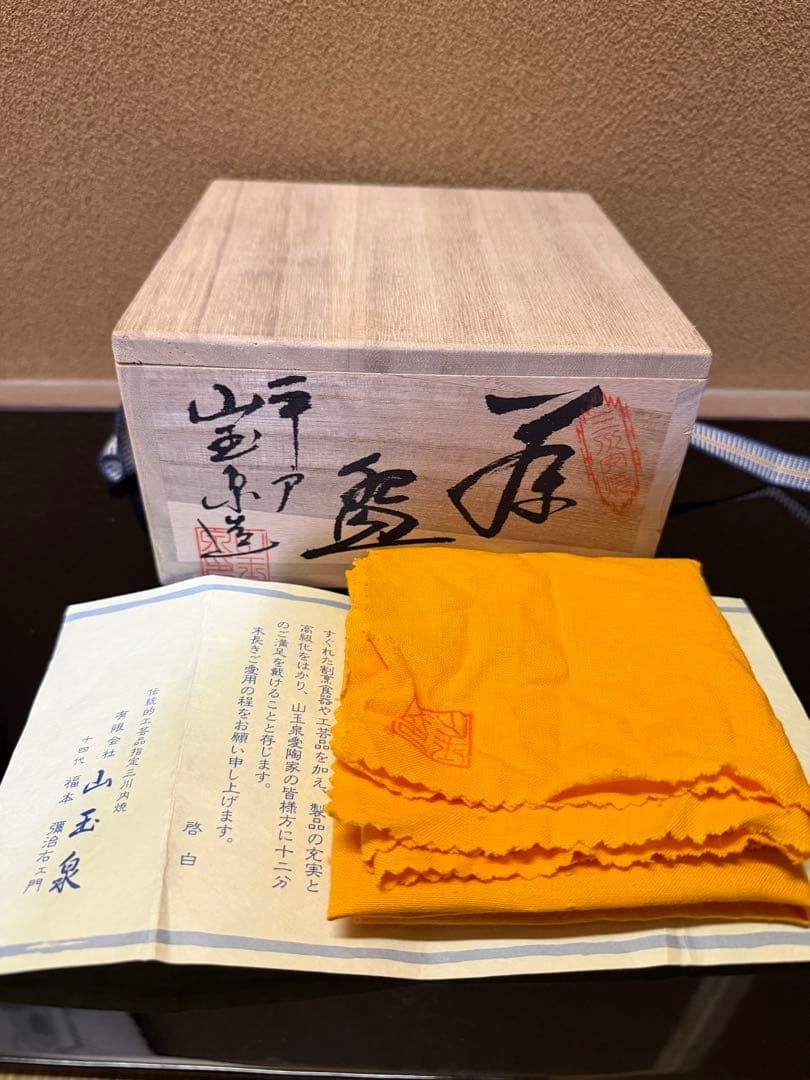 茶盌
平戸
山玉泉造
すぐれた割烹食器や工芸品を加え、製品の充実と
高級化をはかり、山玉泉愛陶家の皆様方に十二分
のご満足を戴けることと存じます。
末長きご愛用の程をお願い申し上げます。
啓白
伝統的工芸品指定三川内焼
有限会社 山玉泉
十四代 福本 彌治右ェ門